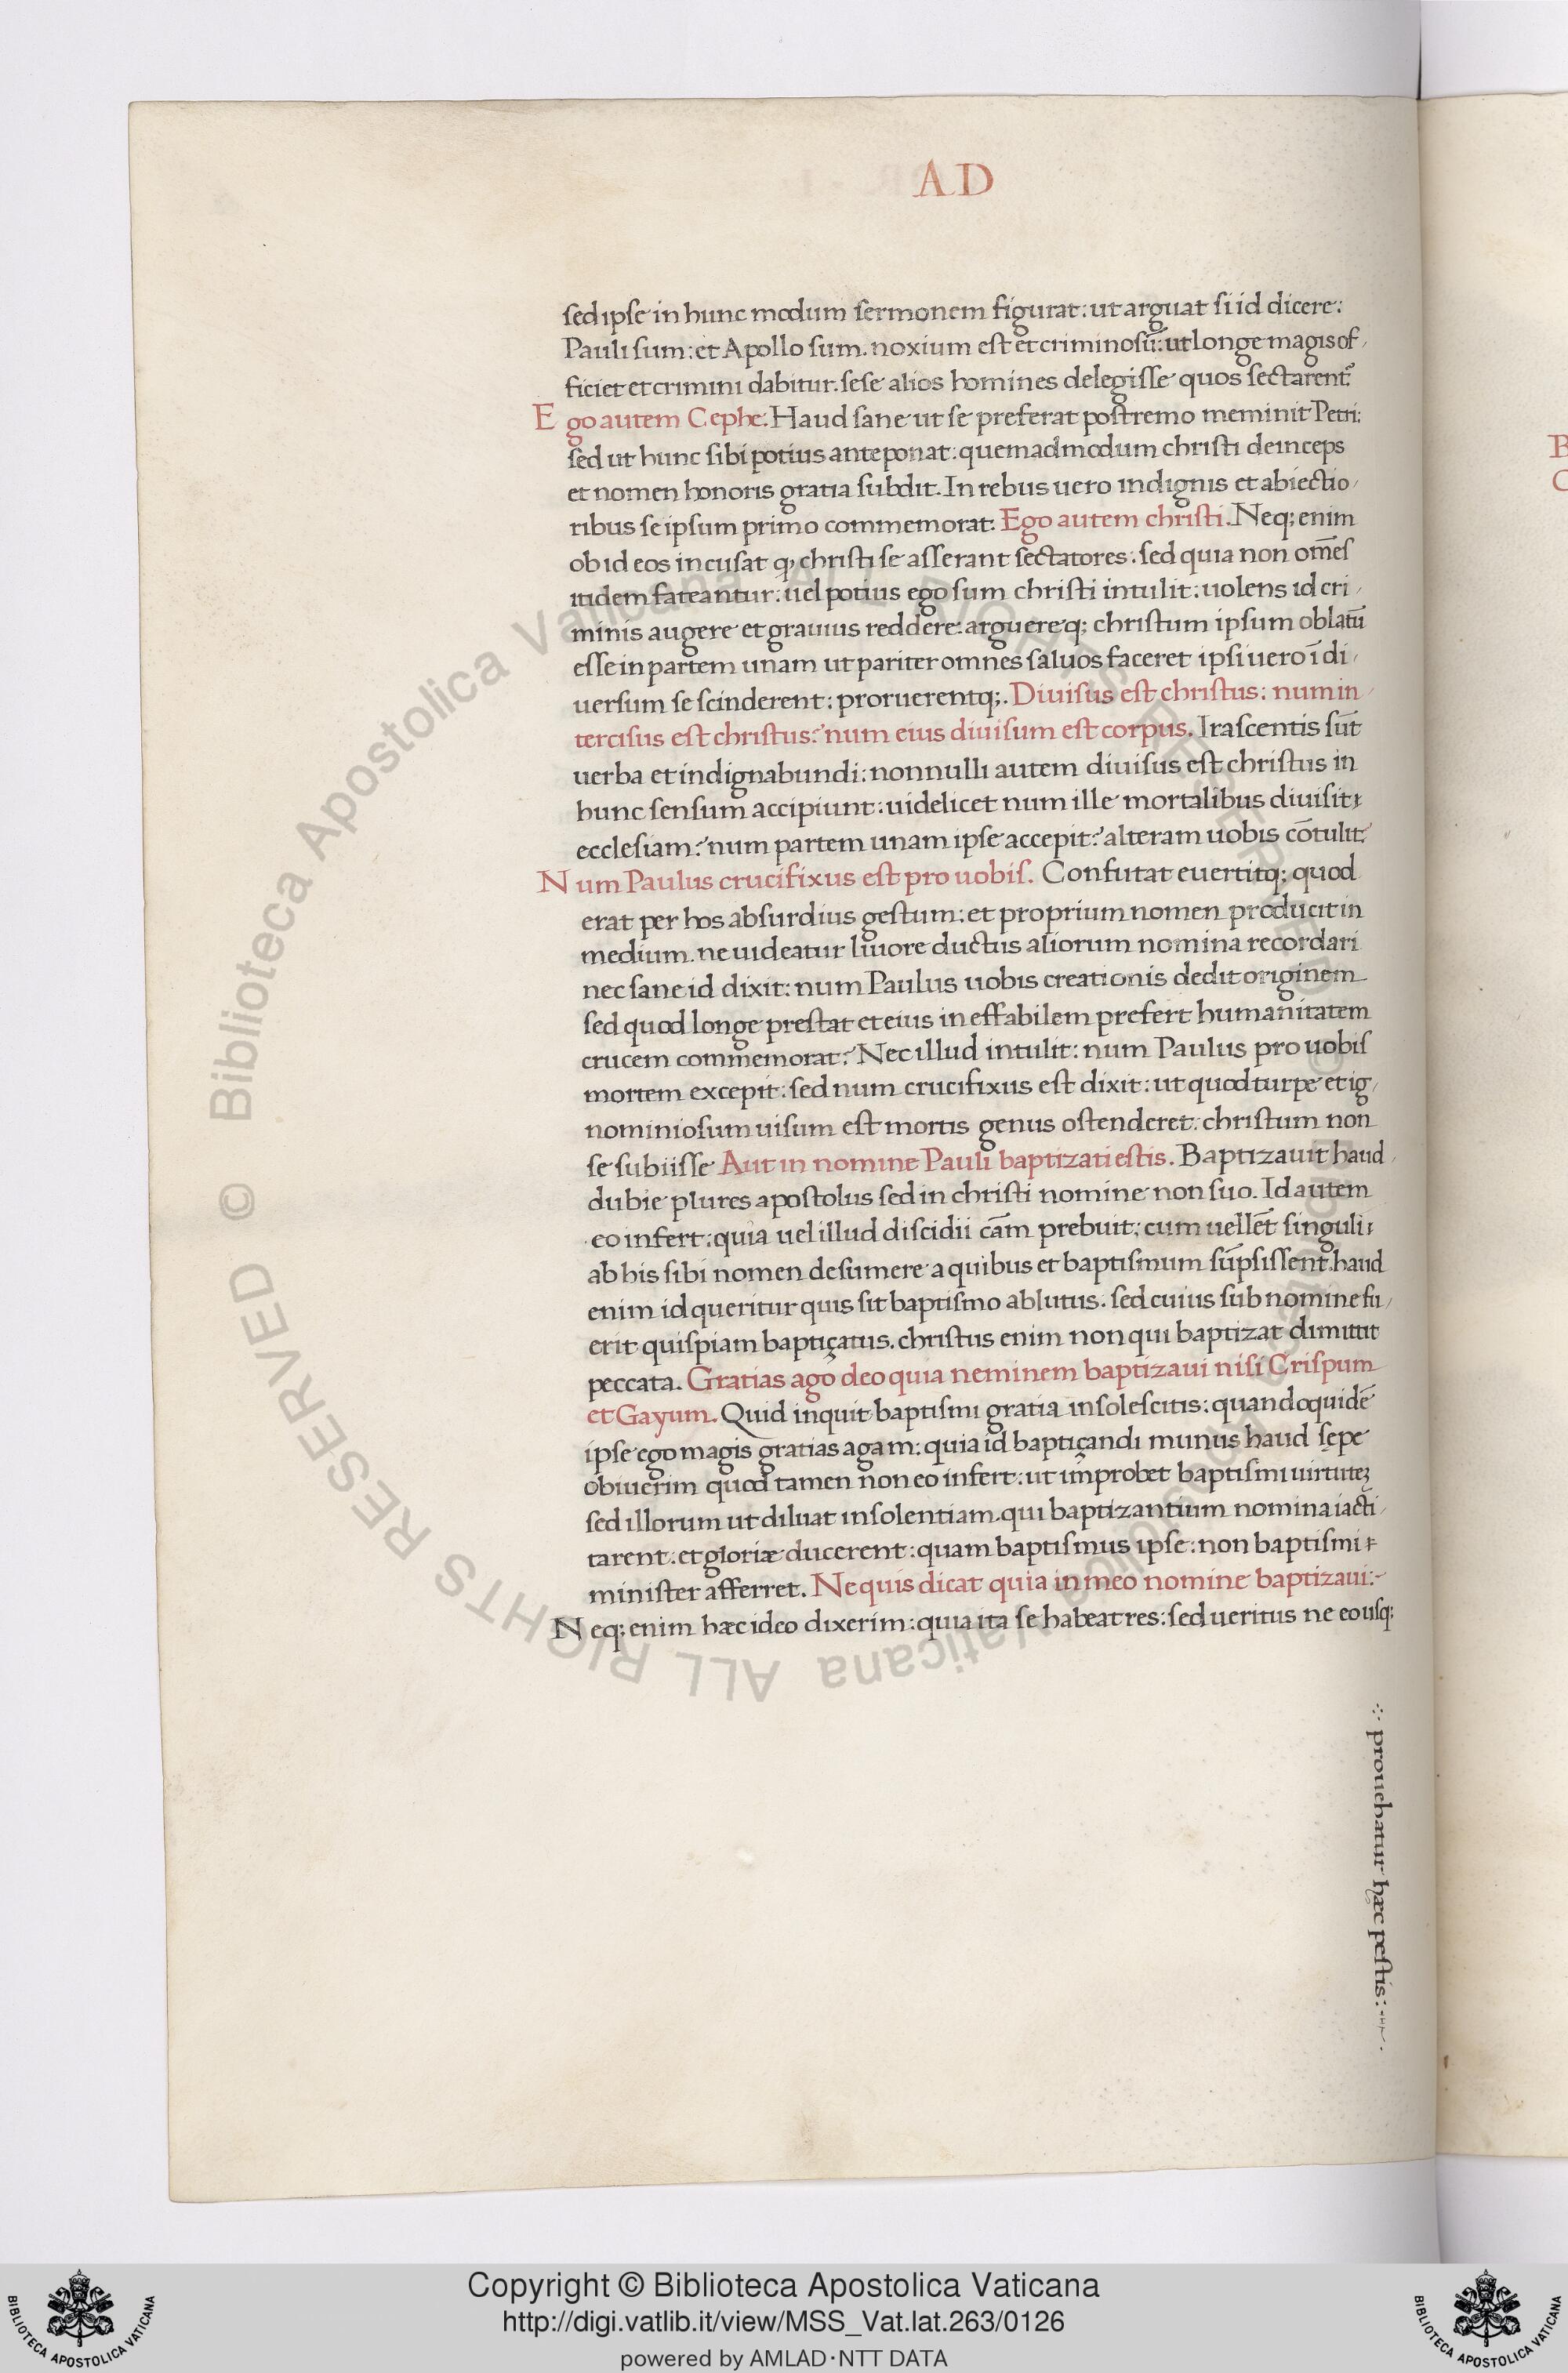 AD
sed ipse in hunc modum sermonem figurat: ut arguat si id dicere:
Pauli sum: et Apollo sum. noxium est et criminosū: ut longe magis of/
ficiet et crimini dabitur. sese alios homines delegisse quos sectarent᷑
Ego autem Cephe. Haud sane ut se preferat postremo meminit Petri:
sed ut hunc sibi potius anteponat: quemadmodum christi deinceps
et nomen honoris gratia subdit. In rebus uero indignis et abiectio/
ribus se ipsum primo commemorat. Ego autem christi. Neq; enim
ob id eos incusat ꝙ christi se asserant sectatores: sed quia non om̄es
itidem fateantur: uel potius ego sum christi intulit: uolens id cri/
minis augere et grauius reddere: arguereq; christum ipsum oblatū
esse in partem unam ut pariter omnes saluos faceret ipsi uero ī di/
uersum se scinderent: proruerentq;. Diuisus est christus: num in/
tercisus est christus? num eius diuisum est corpus. Irascentis sūt
uerba et indignabundi: nonnulli autem diuisus est christus in
hunc sensum accipiunt: uidelicet num ille mortalibus diuisit
ecclesiam? num partem unam ipse accepit? alteram uobis cōtulit?
Num Paulus crucifixus est pro uobis. Confutat euertitq; quod
erat per hos absurdius gestum: et proprium nomen producit in
medium. ne uideatur liuore ductus aliorum nomina recordari
nec sane id dixit: num Paulus uobis creationis dedit originem
sed quod longe prestat et eius ineffabilem prefert humanitatem
crucem commemorat? Nec illud intulit: num Paulus pro uobis
mortem excepit: sed num crucifixus est dixit: ut quod turpe et ig/
nominiosum uisum est mortis genus ostenderet: christum non
se subiisse Aut in nomine Pauli baptizati estis. Baptizauit haud/
dubie plures apostolus sed in christi nomine non suo. Id autem
eo infert: quia uel illud discidii cām prebuit: cum uellēt singuli
ab his sibi nomen desumere a quibus et baptismum sūpsissent. haud
enim id queritur quis sit baptismo ablutus. sed cuius sub nomine fu/
erit quispiam baptiçatus. christus enim non qui baptizat dimittit
peccata. Gratias ago deo quia neminem baptizaui nisi Crispum
et Gayum. Quid inquit baptismi gratia insolescitis: quandoquidē
ipse ego magis gratias agam: quia id baptiçandi munus haud sępe
obiuerim quod tamen non eo infert: ut improbet baptismi uirtuteꝫ
sed illorum ut diluat insolentiam. qui baptizantium nomina iacti/
tarent: et gloriæ ducerent: quam baptismus ipse: non baptismi
minister afferret. Ne quis dicat quia in meo nomine baptizaui:~
Neq; enim hæc ideo dixerim: quia ita se habeat res: sed ueritus ne eousq;
prouehatur hæc pestis:
B
C
© Biblioteca Apostolica Vaticana ALL RIGHTS RESERVED
© Biblioteca Apostolica Vaticana ALL RIGHTS RESERVED
Copyright © Biblioteca Apostolica Vaticana
http://digi.vatlib.it/view/MSS_Vat.lat.263/0126
powered by AMLAD·NTT DATA
BIBLIOTECA APOSTOLICA VATICANA
BIBLIOTECA APOSTOLICA VATICANA